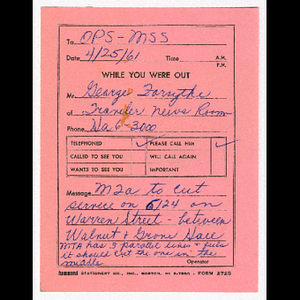 To OPS-MSS
Date 4/25/61 Time A.M.
P.M.
WHILE YOU WERE OUT
Mr. George Forsythe
of Traveler News Room
Phone Ha 6-3000
TELEPHONED ✓ PLEASE CALL HIM ✓
CALLED TO SEE YOU WILL CALL AGAIN
WANTS TO SEE YOU IMPORTANT
Message MTA to cut
service on 6124 on
Warren Street - between
Walnut + Grove Hall
MTA has 3 parallel lines + feels
it should cut the one in the
middle
Operator
STATIONERY CO., INC., BOSTON, FORM 2725